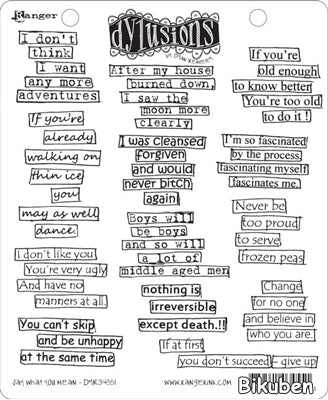 Ranger
DYLUSIONS
by DYAN REAVELEY
I don't
think
I want
any more
adventures
If you're
already
walking on
thin ice
you
may as well
dance.
I don't like you
You're very ugly
And have no
manners at all.
You can't skip
and be unhappy
at the same time
After my house
burned down,
I saw the
moon more
clearly
I was cleansed
forgiven
and would
never bitch
again
Boys will
be boys
and so will
a lot of
middle aged men
nothing is
irreversible
except death.!!
If at first
you don't succeed - give up
If you're
old enough
to know better
You're too old
to do it!
I'm so fascinated
by the process,
fascinating myself
fascinates me.
Never be
too proud
to serve
frozen peas
Change
for no one
and believe in
who you are.
SAY WHAT YOU MEAN - DYR34551
WWW.RANGERINK.COM
Bikuben